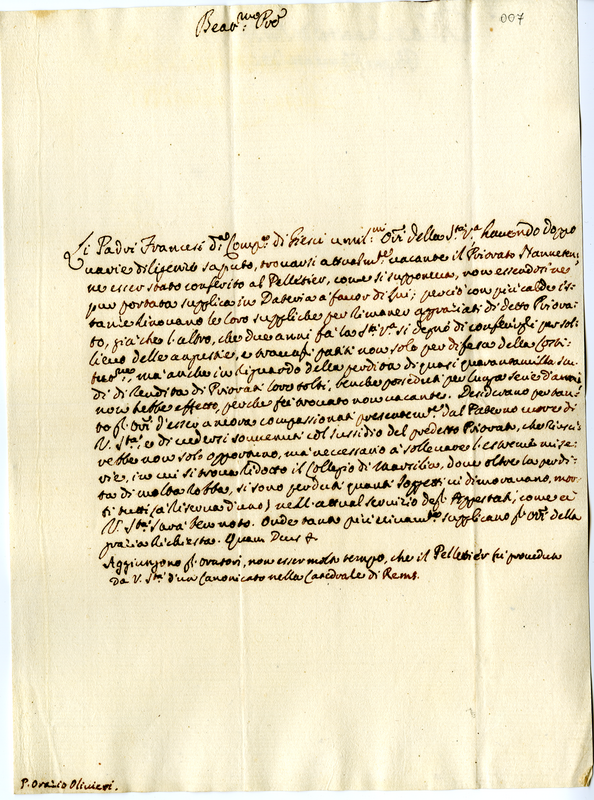 007
Beat.mo Pre
Li Padri Francesi d.a Comp.a di Giesù umil.mi Ori della S.tà V.ra havendo doppo
varie diligenze saputo, trovarsi attualm.te vacante il Priorato Nanneten,
ne esser stato conferito al Pelletier, come si supponeva, non essendosi ne
pur portata supplica in Dataria a favor di lui; perciò con più calde is-
tanze rinovano le loro suppliche per rimaner aggraziati di detto Priora-
to, già che l'altro, che due anni fa la S.tà V.ra si degnò di conferirgli per sol-
lievo delle angustie, e travagli patiti non solo per difesa della Costi-
tut.ne, mà anche in riguardo della perdita di quasi quarantamilla scu-
di di rendita di Priorati loro tolti, benche posseduti per lunga serie d'anni
non hebbe effetto, perche fù trovato non vacante. Desiderano per tan-
to gl'Ori d'esser di nuovo compassionati presentem.te dal Paterno cuore di
V. S.tà, e di vedersi sovvenuti col sussidio del predetto Priorato, che riusci-
rebbe non solo opportuno, mà necessario a sollevare l'estreme mise-
rie, in cui si trova ridotto il Collegio di Marsilia, dove oltre la perdi-
ta di molta robba, si sono perduti quanti soggetti vi dimoravano, mor-
ti tutti (a riserva d'uno) nell'attual servizio degl'Appestati, come a
V. S.tà sarà ben noto. Onde tanto più vivam.te supplicano gl'Ori della
grazia richiesta. Quam Deus &
Aggiungono gl'oratori, non esser molto tempo, che il Pelletier fù proveduto
da V. S.tà d'un Canonicato nella Catedrale di Rems.
P. Orazio Olivieri.